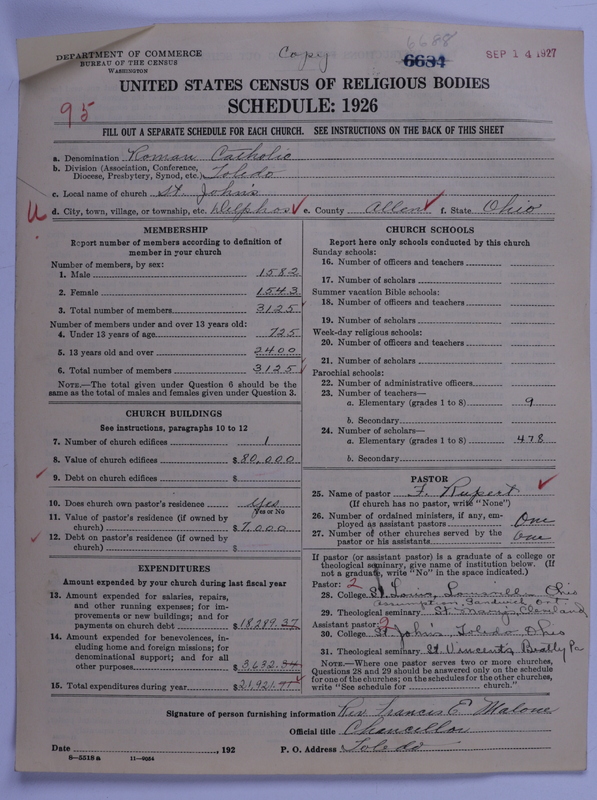 DEPARTMENT OF COMMERCE
BUREAU OF THE CENSUS
WASHINGTON
Copy
6688
6634
SEP 14 1927
UNITED STATES CENSUS OF RELIGIOUS BODIES
SCHEDULE: 1926
95
FILL OUT A SEPARATE SCHEDULE FOR EACH CHURCH. SEE INSTRUCTIONS ON THE BACK OF THIS SHEET
a. Denomination Roman Catholic
b. Division (Association, Conference, Diocese, Presbytery, Synod, etc.) Toledo
c. Local name of church St. John's
U d. City, town, village, or township, etc. Delphos e. County Allen f. State Ohio
MEMBERSHIP
Report number of members according to definition of
member in your church
Number of members, by sex:
1. Male 1582
2. Female 1543
3. Total number of members 3125
Number of members under and over 13 years old:
4. Under 13 years of age 725
5. 13 years old and over 2400
6. Total number of members 3125
NOTE.—The total given under Question 6 should be the
same as the total of males and females given under Question 3.
CHURCH BUILDINGS
See instructions, paragraphs 10 to 12
7. Number of church edifices 1
8. Value of church edifices $80,000
9. Debt on church edifices $
10. Does church own pastor's residence Yes
Yes or No
11. Value of pastor's residence (if owned by
church) $7,000
12. Debt on pastor's residence (if owned by
church) $
EXPENDITURES
Amount expended by your church during last fiscal year
13. Amount expended for salaries, repairs,
and other running expenses; for im-
provements or new buildings; and for
payments on church debt $18289.37
14. Amount expended for benevolences, in-
cluding home and foreign missions; for
denominational support; and for all
other purposes $3,632.34
15. Total expenditures during year $21,921.71
CHURCH SCHOOLS
Report here only schools conducted by this church
Sunday schools:
16. Number of officers and teachers
17. Number of scholars
Summer vacation Bible schools:
18. Number of officers and teachers
19. Number of scholars
Week-day religious schools:
20. Number of officers and teachers
21. Number of scholars
Parochial schools:
22. Number of administrative officers
23. Number of teachers—
a. Elementary (grades 1 to 8) 9
b. Secondary
24. Number of scholars—
a. Elementary (grades 1 to 8) 478
b. Secondary
PASTOR
25. Name of pastor F. Rupert
(If church has no pastor, write "None")
26. Number of ordained ministers, if any, em-
ployed as assistant pastors One
27. Number of other churches served by the
pastor or his assistants one
If pastor (or assistant pastor) is a graduate of a college or
theological seminary, give name of institution below. (If
not a graduate, write "No" in the space indicated.)
Pastor: 2
28. College St. Louis, Louisville Ohio
Assumption, Sandwich Ont.
29. Theological seminary St. Mary's, Cleveland
Assistant pastor: 2
30. College St. John's Toledo Ohio
31. Theological seminary St. Vincents Beatty Pa
NOTE.—Where one pastor serves two or more churches,
Questions 28 and 29 should be answered only on the schedule
for one of the churches; on the schedules for the other churches,
write "See schedule for church."
Signature of person furnishing information Rev. Francis E. Malone
Official title Chancellor
Date , 192 P. O. Address Toledo
8—5518 a 11—9054